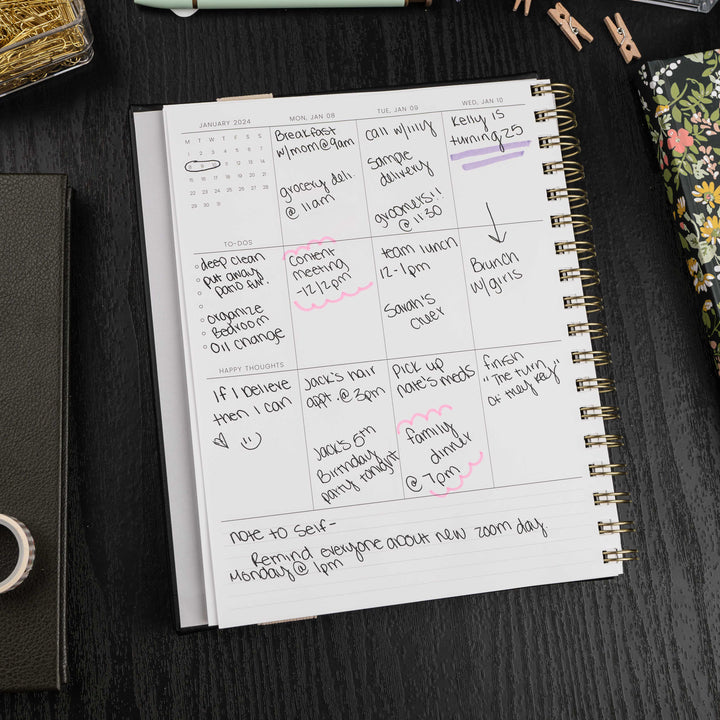 JANUARY 2024
M T W T F S S
1 2 3 4 5 6 7
8 9 10 11 12 13 14
15 16 17 18 19 20 21
22 23 24 25 26 27 28
29 30 31
TO-DOS
deep clean
put away
patio fur.
organize
Bedroom
Oil change
HAPPY THOUGHTS
If I believe
then I can
MON, JAN 08
Breakfast
w/mom@9am
grocery deli.
@ 11am
content
meeting
-12/2pm
Jack's hair
appt. @ 3pm
Jack's 5th
Birthday
party tonight
TUE, JAN 09
call w/
Sample
delivery
groomers!!
@ 11:30
team lunch
12-1pm
Sarah's
cheer
PICK UP
nate's meds
family
dinner
@ 7pm
WED, JAN 10
Kelly is
turning 25
Brunch
w/girls
finish
"The turn
of the key"
note to self-
Remind everyone about new zoom day.
Monday @ 1pm